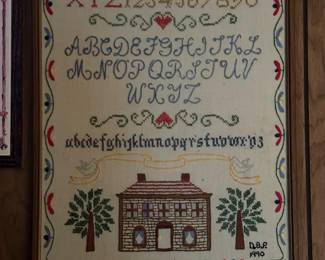 XYZ1234567890
ABCDEFGHIJKL
MNOPQRSTUV
WXYZ
abcdefghijklmnopqrstuvwxyz
D.B.P.
1990